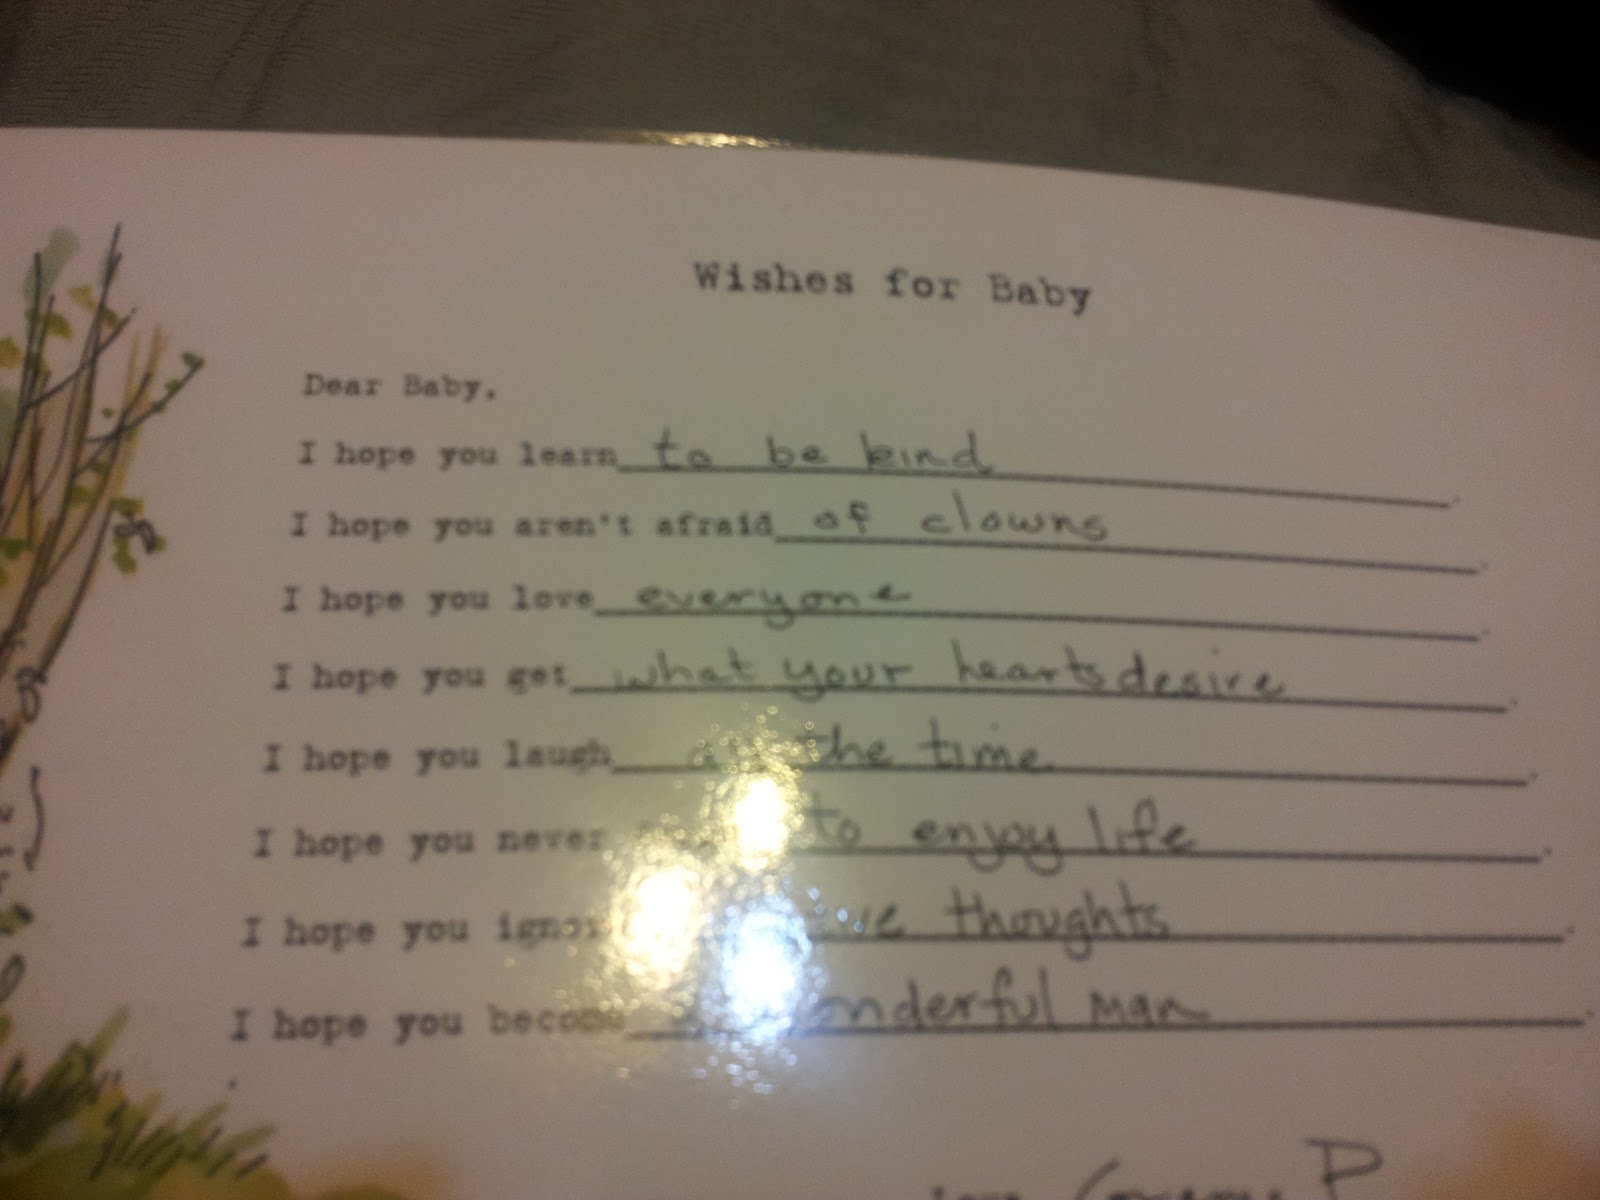 Wishes for Baby
Dear Baby,
I hope you learn to be kind.
I hope you aren't afraid of clowns.
I hope you love everyone.
I hope you get what your hearts desire.
I hope you laugh the time.
I hope you never to enjoy life.
I hope you thoughts.
I hope you become man.